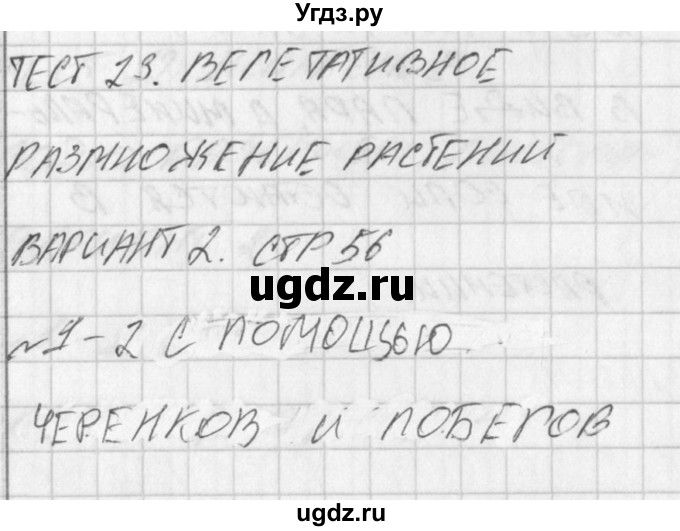 Угдз.ру
ТЕСТ 23. ВЕГЕТАТИВНОЕ
РАЗМНОЖЕНИЕ РАСТЕНИЙ
ВАРИАНТ 2. СТР 56
ugdz.ru
№1-2 С ПОМОЩЬЮ
ЧЕРЕНКОВ И ПОБЕГОВ
ugdz.ru